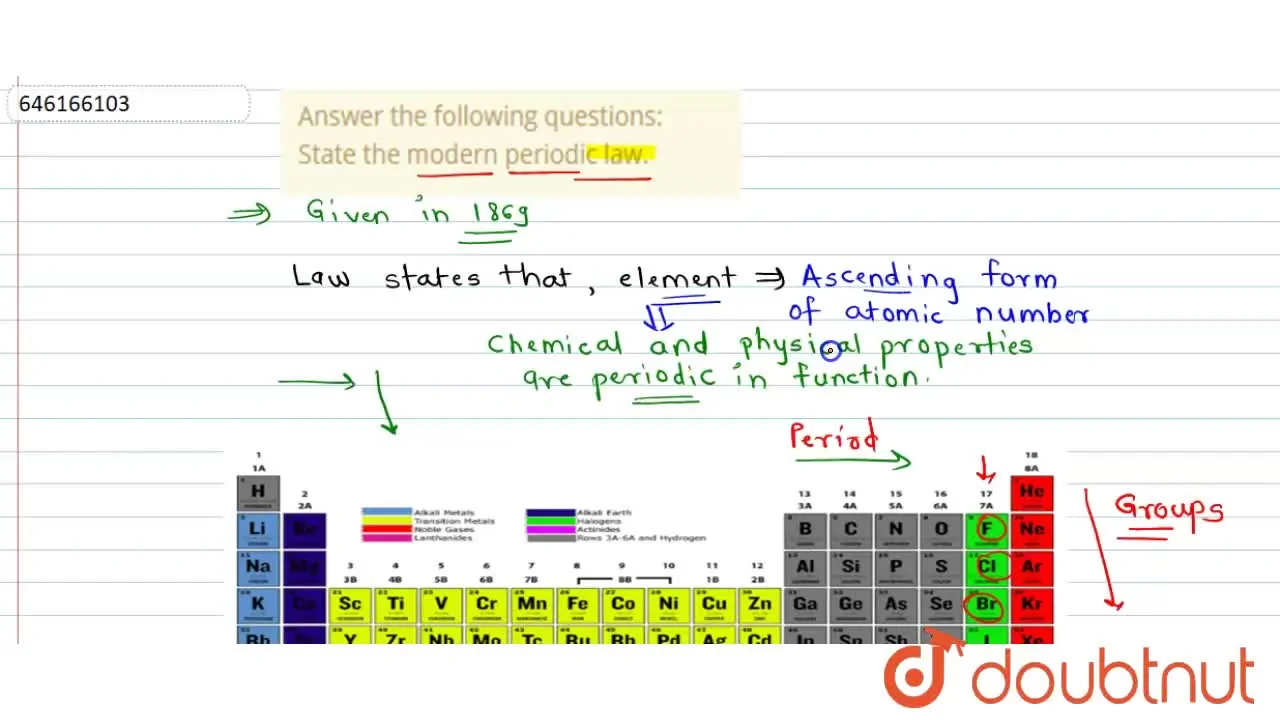 646166103
Answer the following questions:
State the modern periodic law.
⇒ Given in 1869
Law states that, element ⇒ Ascending form
of atomic number
Chemical and physical properties
are periodic in function.
Period
Groups
1 18
1A 8A
H 2 13 14 15 16 17 He
2A 3A 4A 5A 6A 7A
Alkali Metals Alkali Earth
Transition Metals Halogens
Noble Gases Actinides
Lanthanides Rows 3A-6A and Hydrogen
Li Be B C N O F Ne
Na Mg 3 4 5 6 7 8 9 10 11 12 Al Si P S Cl Ar
3B 4B 5B 6B 7B 8B 1B 2B
K Ca Sc Ti V Cr Mn Fe Co Ni Cu Zn Ga Ge As Se Br Kr
Rb Y Zr Nb Mo Tc Ru Rh Pd Ag Cd In Sn Sb I Xe
doubtnut